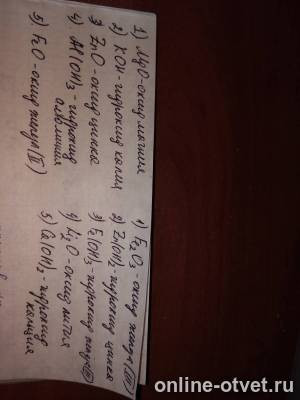 1) MgO-оксид магния
2) KOH-гидроксид калия
3) ZnO-оксид цинка
4) Al(OH)3-гидроксид
алюминия
5) FeO-оксид железа (II)
1) Fe2O3-оксид железа (III)
2) Zn(OH)2-гидроксид цинка
3) Fe(OH)3-гидроксид железа (III)
4) Li2O-оксид лития
5) Ca(OH)2-гидроксид
кальция
online-otvet.ru